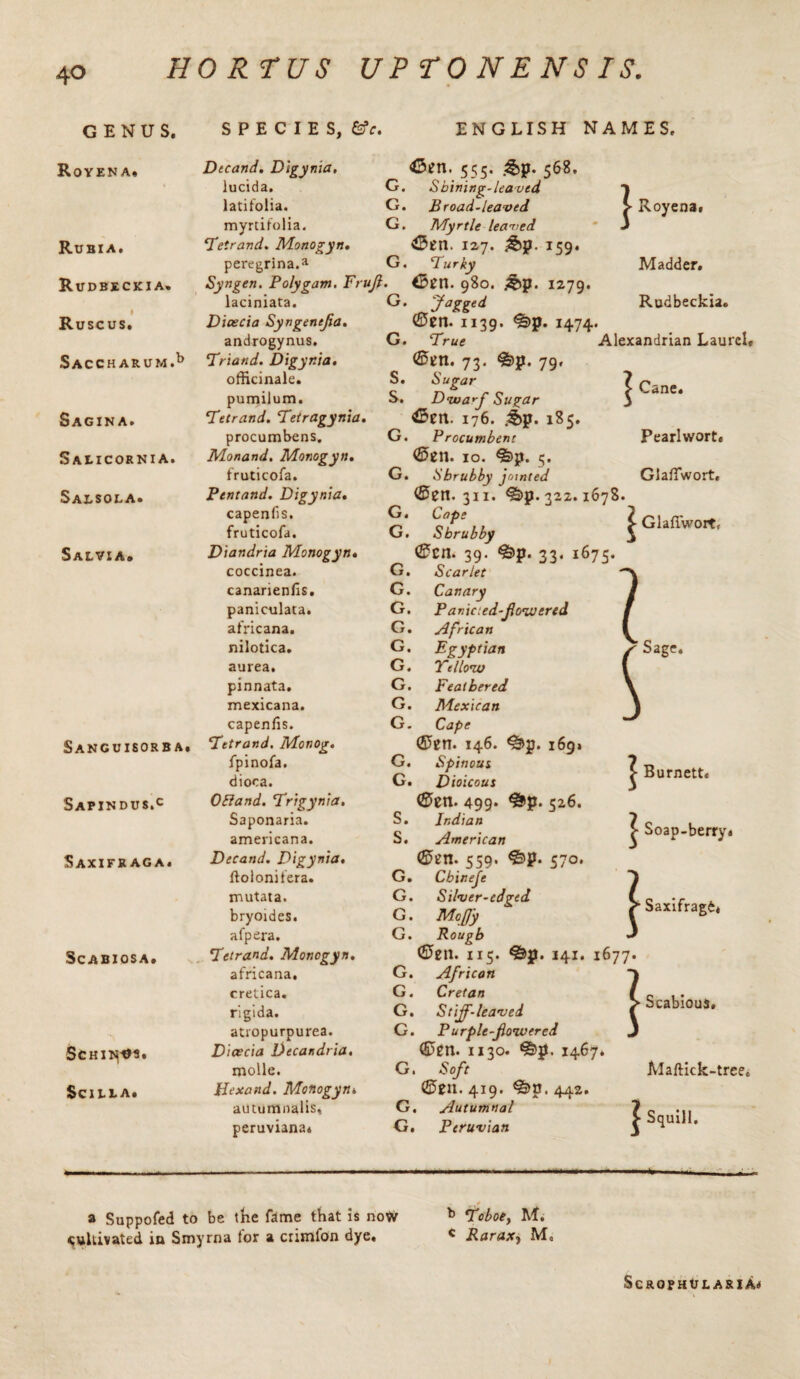 40 HORTUS UPTONENSIS.
GENUS. SPECIES, &c. ENGLISH NAMES.
ROYENA. Decand. Digynia. Gen. 555. Sp. 568.
lucida. G. Shining-leaved
latifolia. G. Broad-leaved } Royena.
myrtifolia. G. Myrtle leaved
RUBIA. Tetrand. Monogyn. Gen. 127. Sp. 159.
peregrina.a G. Turky Madder.
RUDBECKIA. Syngen. Polygam. Fruſt. Gen. 980. Sp. 1279.
laciniata. G. Jagged Rudbeckia.
RUSCUS. Diœcia Syngeneſia. Gen. 1139. Sp. 1474.
androgynus. G. True Alexandrian Laurel.
SACCHARUM.b Triand. Digynia. Gen. 73. Sp. 79.
officinale. S. Sugar } Cane.
pumilum. S. Dwarf Sugar
SAGINA. Tetrand. Tetragynia. Gen. 176. Sp. 185.
procumbens. G. Procumbent Pearlwort.
SALICORNIA. Monand. Monogyn. Gen. 10. Sp. 5.
fruticoſa. G. Shrubby jointed Glaſſwort.
SALSOLA. Pentand. Digynia. Gen. 311. Sp. 322. 1678.
capenſis. G. Cape } Glaſſwort.
fruticoſa. G. Shrubby
SALVIA. Diandria Monogyn. Gen. 39. Sp. 33. 1675.
coccinea. G. Scarlet
canarienſis. G. Canary
paniculata. G. Panicled-flowered
africana. G. African
nilotica. G. Egyptian } Sage.
aurea. G. Yellow
pinnata. G. Feathered
mexicana. G. Mexican
capenſis. G. Cape
SANGUISORBA. Tetrand. Monog. Gen. 146. Sp. 169.
ſpinoſa. G. Spinous } Burnett.
dioca. G. Dioicous
SAPINDUS.c Octand. Trigynia. Gen. 499. Sp. 526.
Saponaria. S. Indian } Soap-berry.
americana. S. American
SAXIFRAGA. Decand. Digynia. Gen. 559. Sp. 570.
ſtolonifera. G. Chineſe
mutata. G. Silver-edged } Saxifrage.
bryoides. G. Moſſy
aſpera. G. Rough
SCABIOSA. Tetrand. Monogyn. Gen. 115. Sp. 141. 1677.
africana. G. African
cretica. G. Cretan } Scabious.
rigida. G. Stiff-leaved
atropurpurea. G. Purple-flowered
SCHINUS. Diœcia Decandria. Gen. 1130. Sp. 1467.
molle. G. Soft Maſtick-tree.
SCILLA. Hexand. Monogyn. Gen. 419. Sp. 442.
autumnalis. G. Autumnal } Squill.
peruviana. G. Peruvian
a Suppoſed to be the ſame that is now
cultivated in Smyrna for a crimſon dye.
b Toboe, M.
c Rarax, M.
SCROPHULARIA.